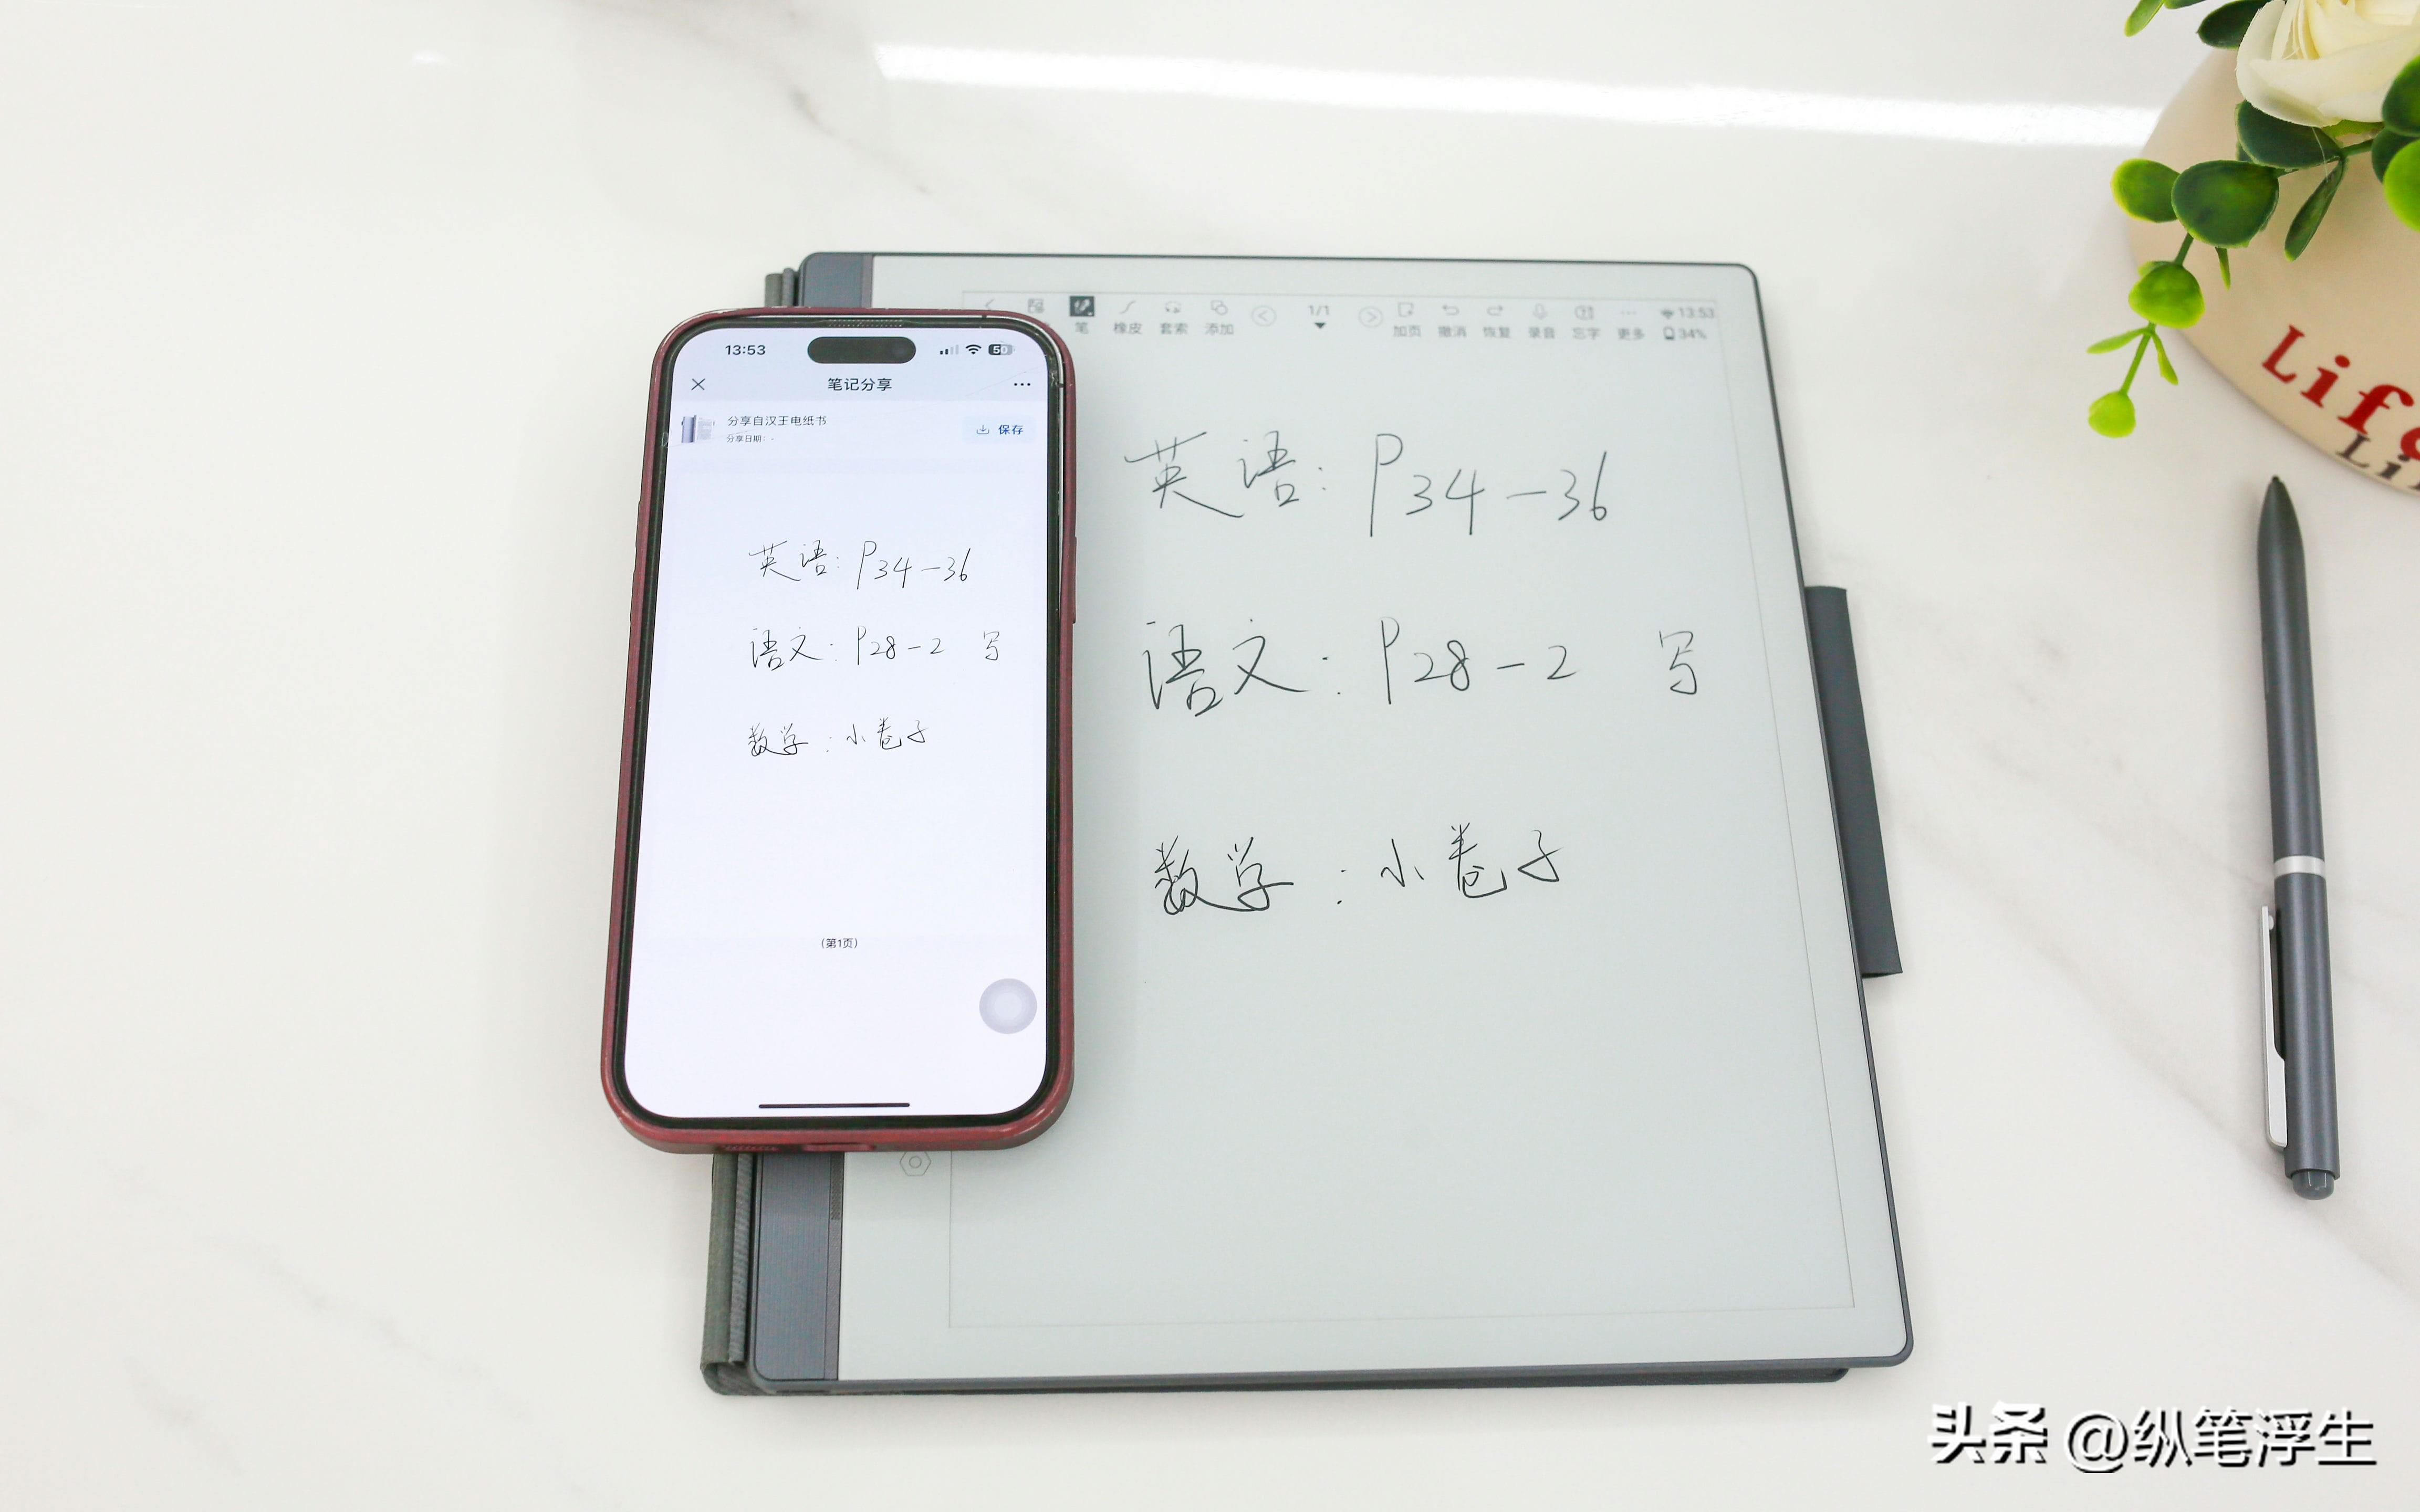 笔 橡皮 套索 添加 1/1 加页 撤消 恢复 录音 忘字 更多 13:53 34%
英语: P34-36
语文: P28-2 写
数学: 小卷子
13:53 50
笔记分享
分享自汉王电纸书
分享日期: -
保存
英语: P34-36
语文: P28-2 写
数学: 小卷子
(第1页)
Life
头条 @纵笔浮生